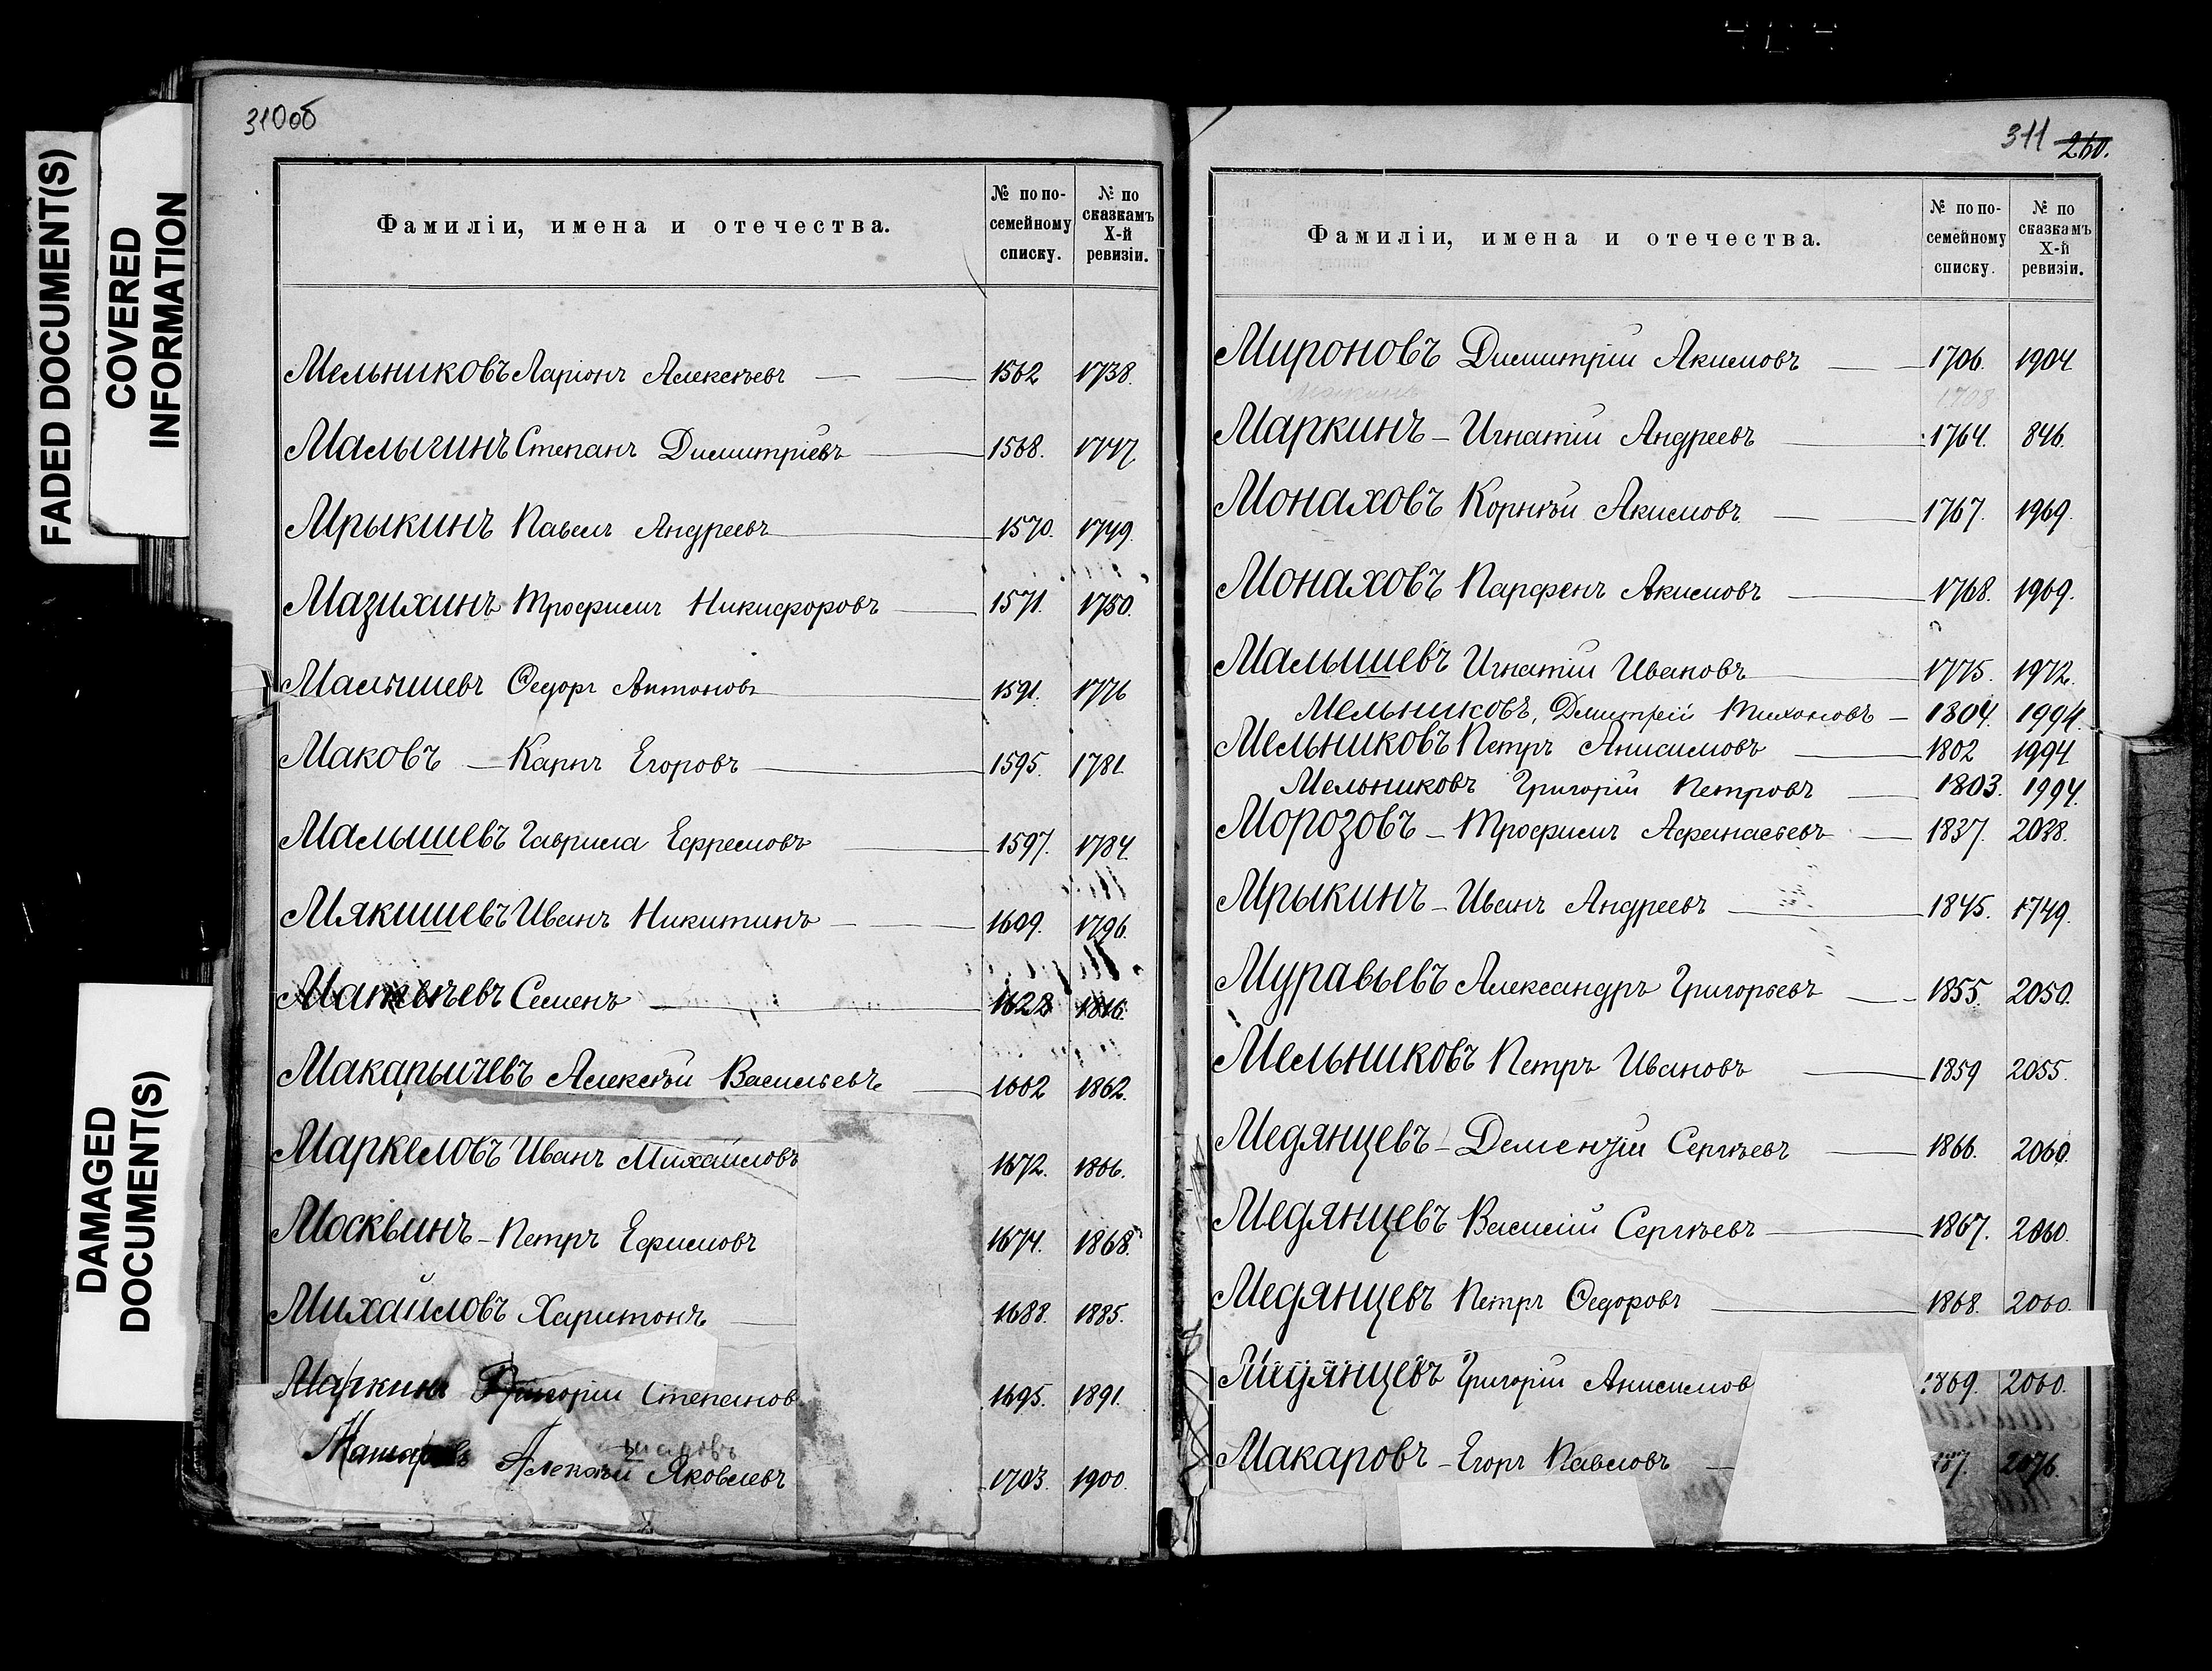 FADED DOCUMENT(S)
COVERED
INFORMATION
DAMAGED
DOCUMENT(S)
310об
Фамиліи, имена и отечества.
№ по по-
семейному
списку.
№ по
сказкамъ
X-й
ревизіи.
Мельниковъ Ларіонъ Алексѣевъ 1562 1738.
Малыгинъ Степанъ Димитріевъ 1568. 1747
Мрыкинъ Павелъ Андреевъ 1570. 1749.
Мазихинъ Трофимъ Никифоровъ 1571. 1750.
Малышевъ Ѳедоръ Антоновъ 1591. 1776
Маковъ — Карпъ Егоровъ 1595. 1781
Малышевъ Гаврила Ефремовъ 1597. 1784.
Мякишевъ Иванъ Никитинъ 1609. 1796.
Матвѣевъ Семенъ 1628 1816.
Макарычевъ Алексѣй Васильевъ 1662 1862.
Маркеловъ Иванъ Михайловъ 1672. 1866.
Москвинъ - Петръ Ефимовъ 1674. 1868.
Михайловъ Харитонъ 1688. 1885.
Маркинъ Григорій Степановъ 1695. 1891.
Алексѣй Яковлевъ 1703. 1900.
311 260.
Фамиліи, имена и отечества.
№ по по-
семейному
списку.
№ по
сказкамъ
X-й
ревизіи.
Мироновъ Димитрій Акимовъ 1706. 1904
1708
Маркинъ - Игнатій Андреевъ 1764. 846.
Монаховъ Корнѣй Акимовъ 1767. 1969.
Монаховъ Парфенъ Акимовъ 1768. 1969.
Малышевъ Игнатій Ивановъ 1775. 1972.
Мельниковъ, Дмитрій Тихоновъ - 1804. 1994.
Мельниковъ Петръ Анисимовъ 1802 1994
Мельниковъ Григорій Петровъ 1803. 1994.
Морозовъ - Трофимъ Афанасьевъ 1837. 2038.
Мрыкинъ - Иванъ Андреевъ 1845. 1749.
Муравьевъ Александръ Григорьевъ 1855. 2050.
Мельниковъ Петръ Ивановъ 1859 2055.
Медянцевъ - Дементій Сергѣевъ 1866. 2060.
Медянцевъ Василій Сергѣевъ 1867. 2060.
Медянцевъ Петръ Ѳедоровъ 1868. 2060.
Медянцевъ Григорій Анисимов 1869. 2060.
Макаровъ - Егоръ Павловъ 2076.